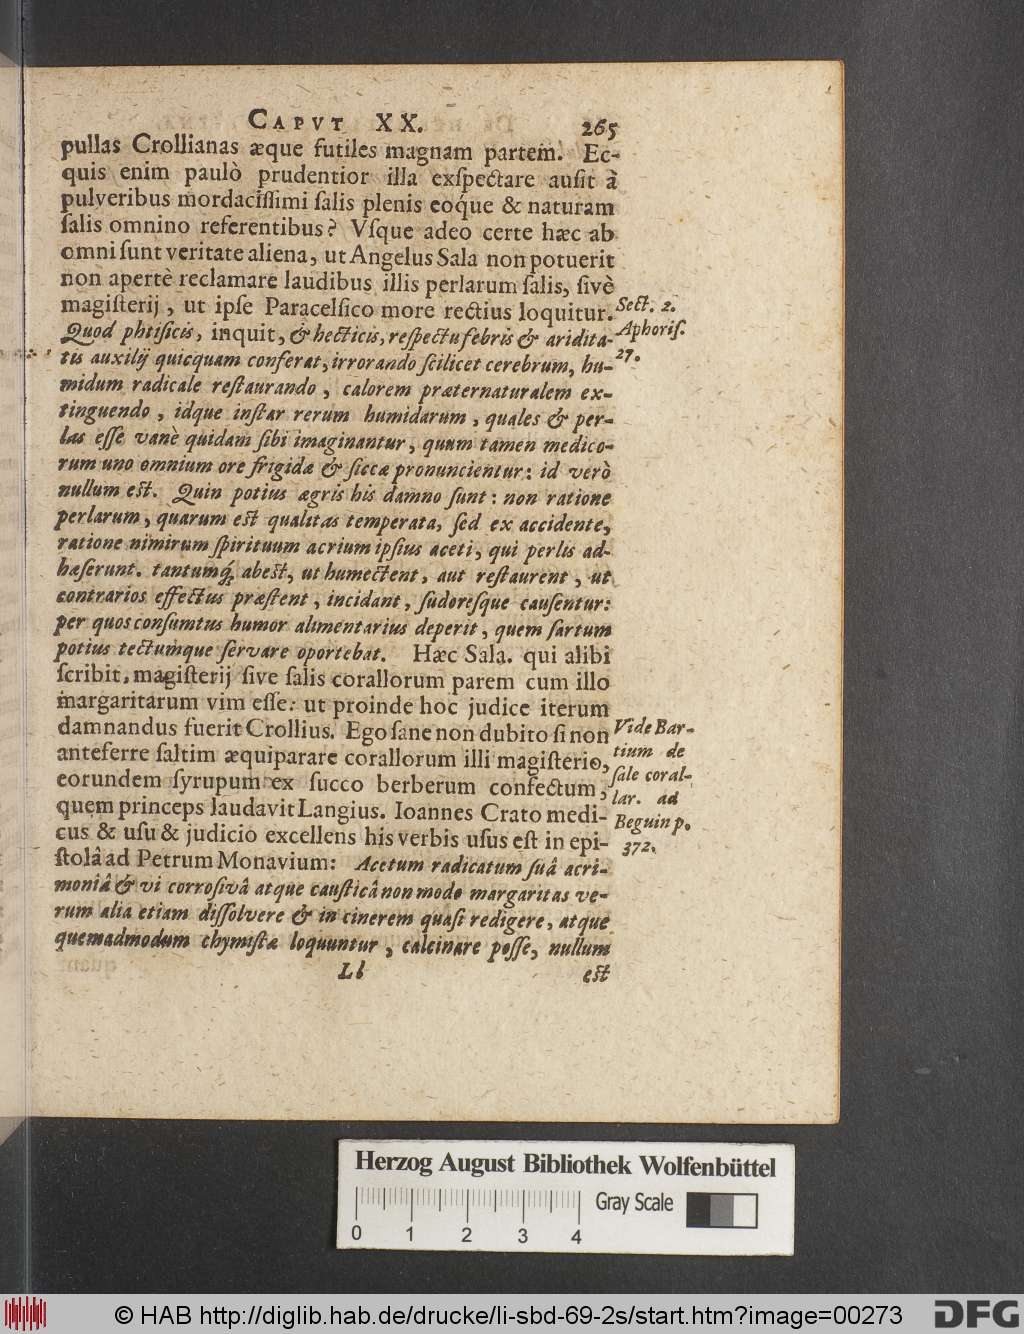 CAPVT XX. 265
pullas Crollianas æque futiles magnam partem. Ec-
quis enim paulò prudentior illa exſpectare auſit à
pulveribus mordaciſſimi ſalis plenis eoq́ue & naturam
ſalis omnino referentibus? Vſque adeo certe hæc ab
omni ſunt veritate aliena, ut Angelus Sala non potuerit
non apertè reclamare laudibus illis perlarum ſalis, ſivè
magiſterij, ut ipſe Paracelſico more rectius loquitur.
Sect. 2.
Aphoriſ.
27.
Quod phtiſicis, inquit, & hecticis, reſpectu febris & aridita-
tis auxilij quicquam conferat, irrorando ſcilicet cerebrum, hu-
midum radicale reſtaurando, calorem præternaturalem ex-
tinguendo, idque inſtar rerum humidarum, quales & per-
las eſſe vanè quidam ſibi imaginantur, quum tamen medico-
rum uno omnium ore frigidæ & ſiccæ pronuncientur: id verò
nullum eſt. Quin potius ægris his damno ſunt: non ratione
perlarum, quarum eſt qualitas temperata, ſed ex accidente,
ratione nimirum ſpirituum acrium ipſius aceti, qui perlis ad-
hæſerunt. tantumq́; abeſt, ut humectent, aut reſtaurent, ut
contrarios effectus præſtent, incidant, ſudoreſque cauſentur:
per quos conſumtus humor alimentarius deperit, quem ſartum
potius tectumque ſervare oportebat. Hæc Sala. qui alibi
ſcribit, magiſterij ſive ſalis corallorum parem cum illo
margaritarum vim eſſe: ut proinde hoc judice iterum
damnandus fuerit Crollius. Ego ſane non dubito ſi non
anteferre ſaltim æquiparare corallorum illi magiſterio,
eorundem ſyrupum ex ſucco berberum confectum,
quem princeps laudavit Langius. Ioannes Crato medi-
cus & uſu & judicio excellens his verbis uſus eſt in epi-
ſtolâ ad Petrum Monavium: Acetum radicatum ſuâ acri-
Vide Bar-
tium de
ſale coral-
lar. ad
Beguin p.
372.
moniâ & vi corroſivâ atque cauſticâ non modo margaritas ve-
rum alia etiam diſſolvere & in cinerem quaſi redigere, atque
quemadmodum chymiſtæ loquuntur, calcinare poſſe, nullum
Ll eſt
Herzog August Bibliothek Wolfenbüttel
0 1 2 3 4 Gray Scale
© HAB http://diglib.hab.de/drucke/li-sbd-69-2s/start.htm?image=00273 DFG